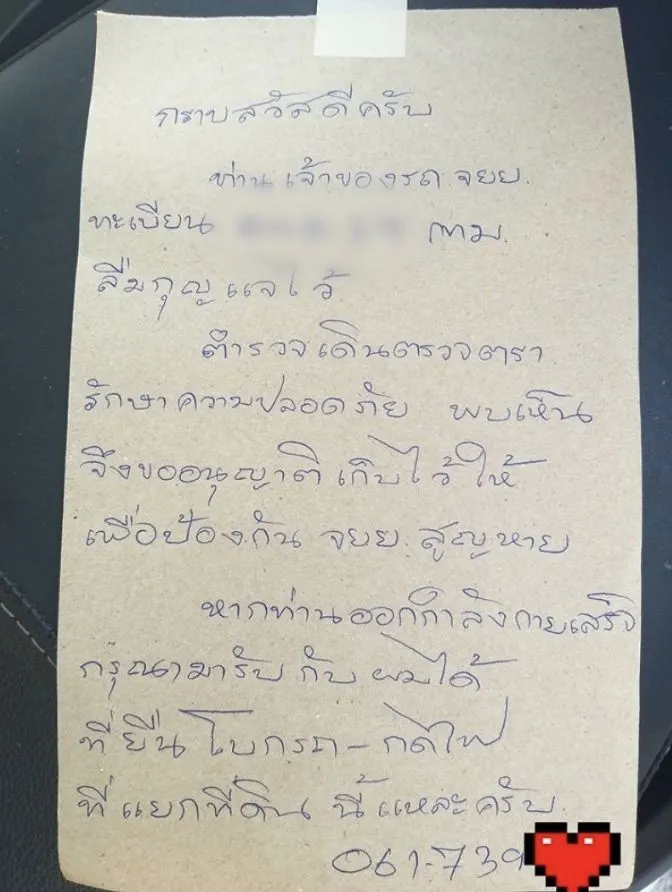 กราบสวัสดีครับ
ท่าน เจ้าของรถ จยย.
ทะเบียน กทม.
ลืมกุญแจไว้
ตำรวจเดินตรวจตรา
รักษาความปลอดภัย พบเห็น
จึงขออนุญาติ เก็บไว้ให้
เพื่อป้องกัน จยย. สูญหาย
หากท่านออกกำลังกายเสร็จ
กรุณามารับ กับ ผมได้
ที่ยืน โบกรถ - กดไฟ
ที่ แยกที่ดิน นี้แหละครับ
061-739